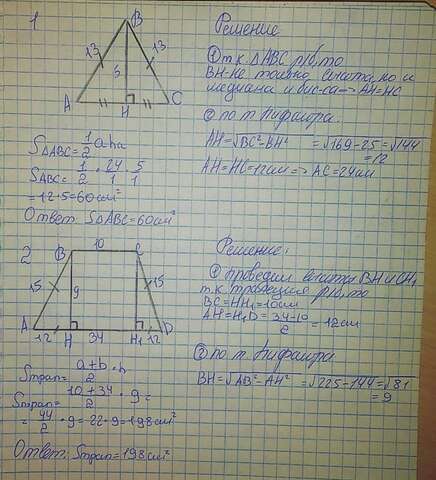 1
B
13
13
5
A
H
C
Решение
① т.к. △ABC р/б, то
BH-не только высота, но и
медиана и бис-са => AH=HC
② по т. Пифагора.
AH=√BC²-BH² = √169-25 = √144
= 12
AH=HC=12см => AC=24см
S△ABC = 1/2 a·ha
SABC = 1/2 · 24/1 · 5/1
= 12·5=60см²
Ответ: S△ABC=60см²
2
B
10
C
15
9
15
A
12
H
34
H₁
12
D
Решение:
① проведём высоты BH и CH₁
т.к. трапеция р/б, то
BC=HH₁=10см
AH=H₁D = 34-10/2 = 12см
② по т. Пифагора
BH=√AB²-AH² = √225-144 = √81
= 9
Sтрап = a+b/2 · h
Sтрап = 10+34/2 · 9 =
= 44/2 · 9 = 22·9 = 198см²
Ответ: Sтрап = 198см²